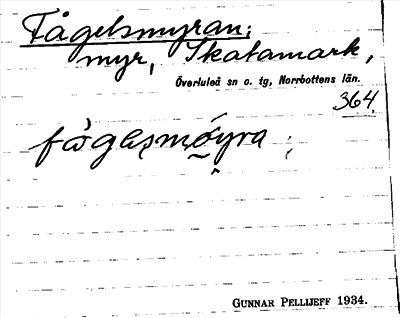 Fågelsmyran;
myr, Skatamark,
Överluleå sn o. tg, Norrbottens län.
364
fågelsmöyra ;
GUNNAR PELLIJEFF 1934.